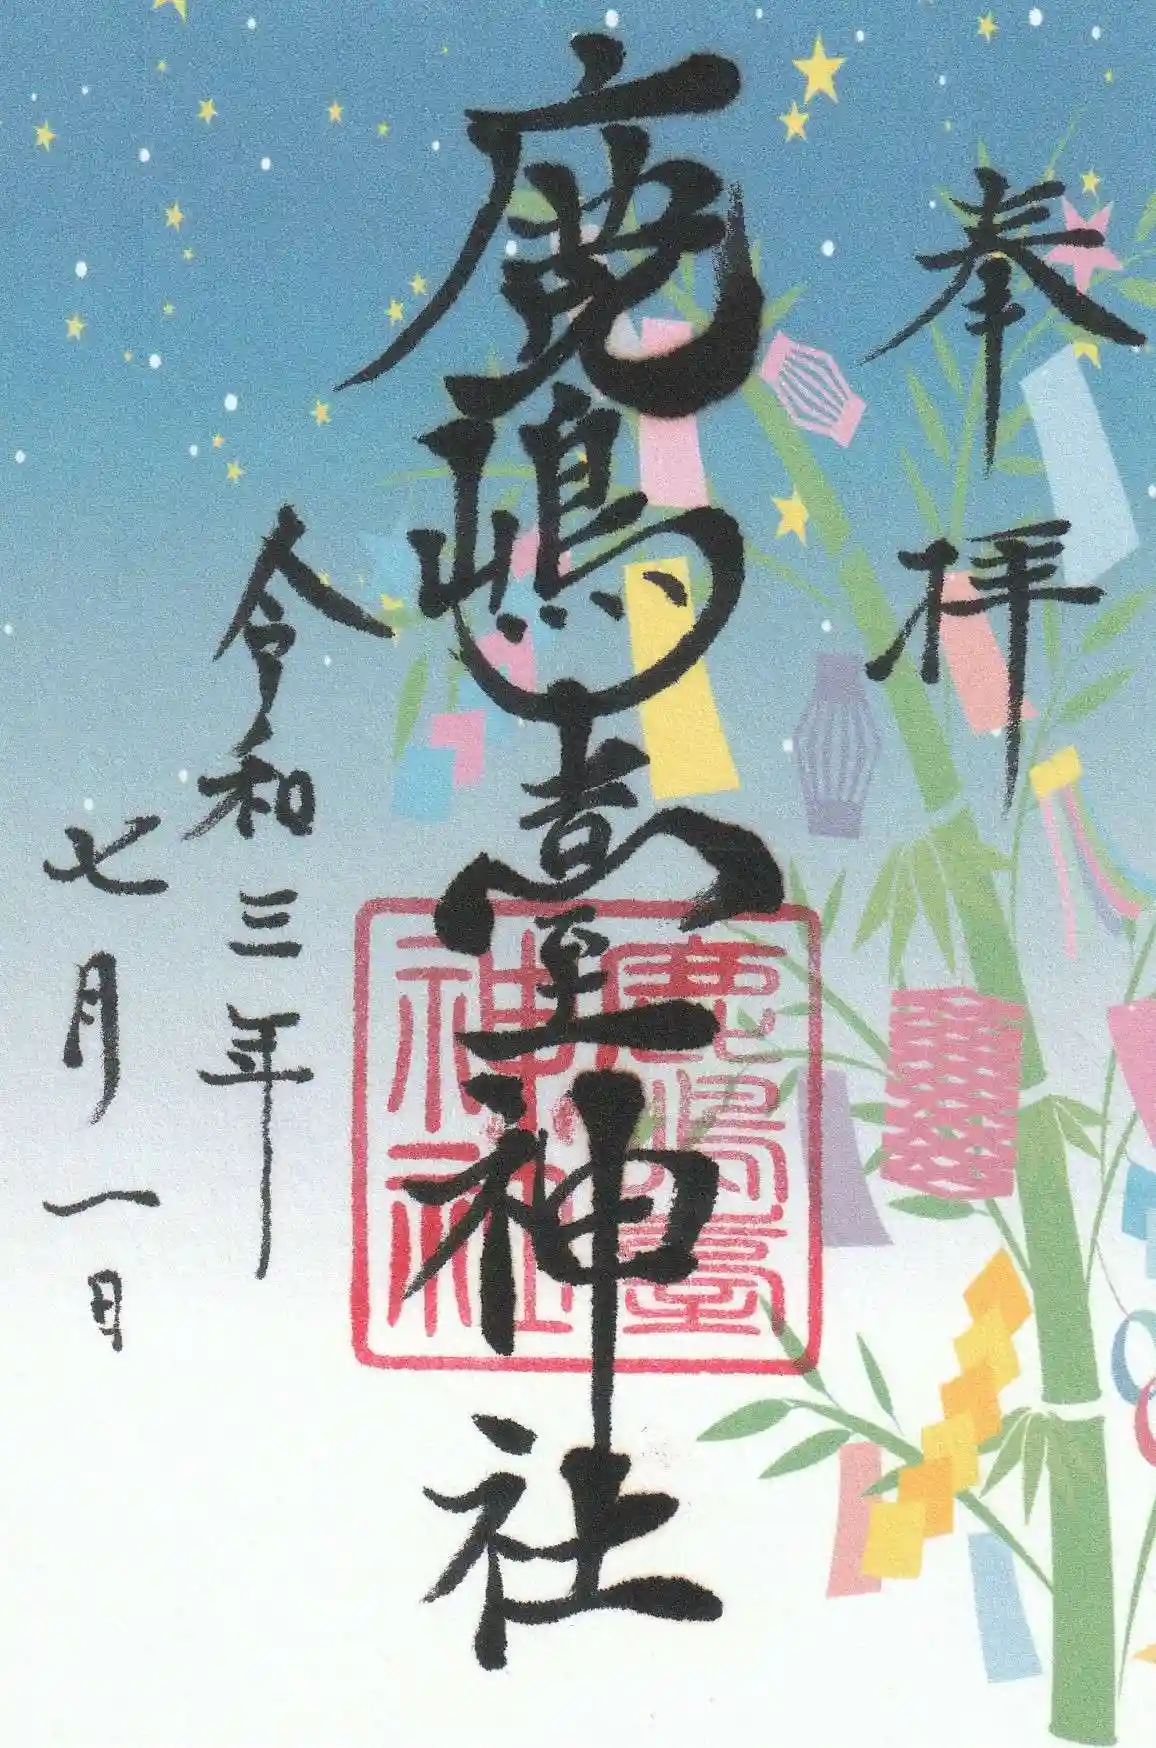 奉拝
鹿嶋臺神社
鹿嶋臺
神社
令和三年
七月一日